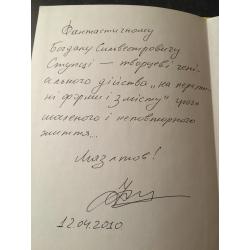 Фантастичному
Богдану Сильвестровичу
Ступці — творцеві гені-
ального дійства „на перети-
ні форми і змісту" цього
шаленого і неповторного
життя...
12.04.2010